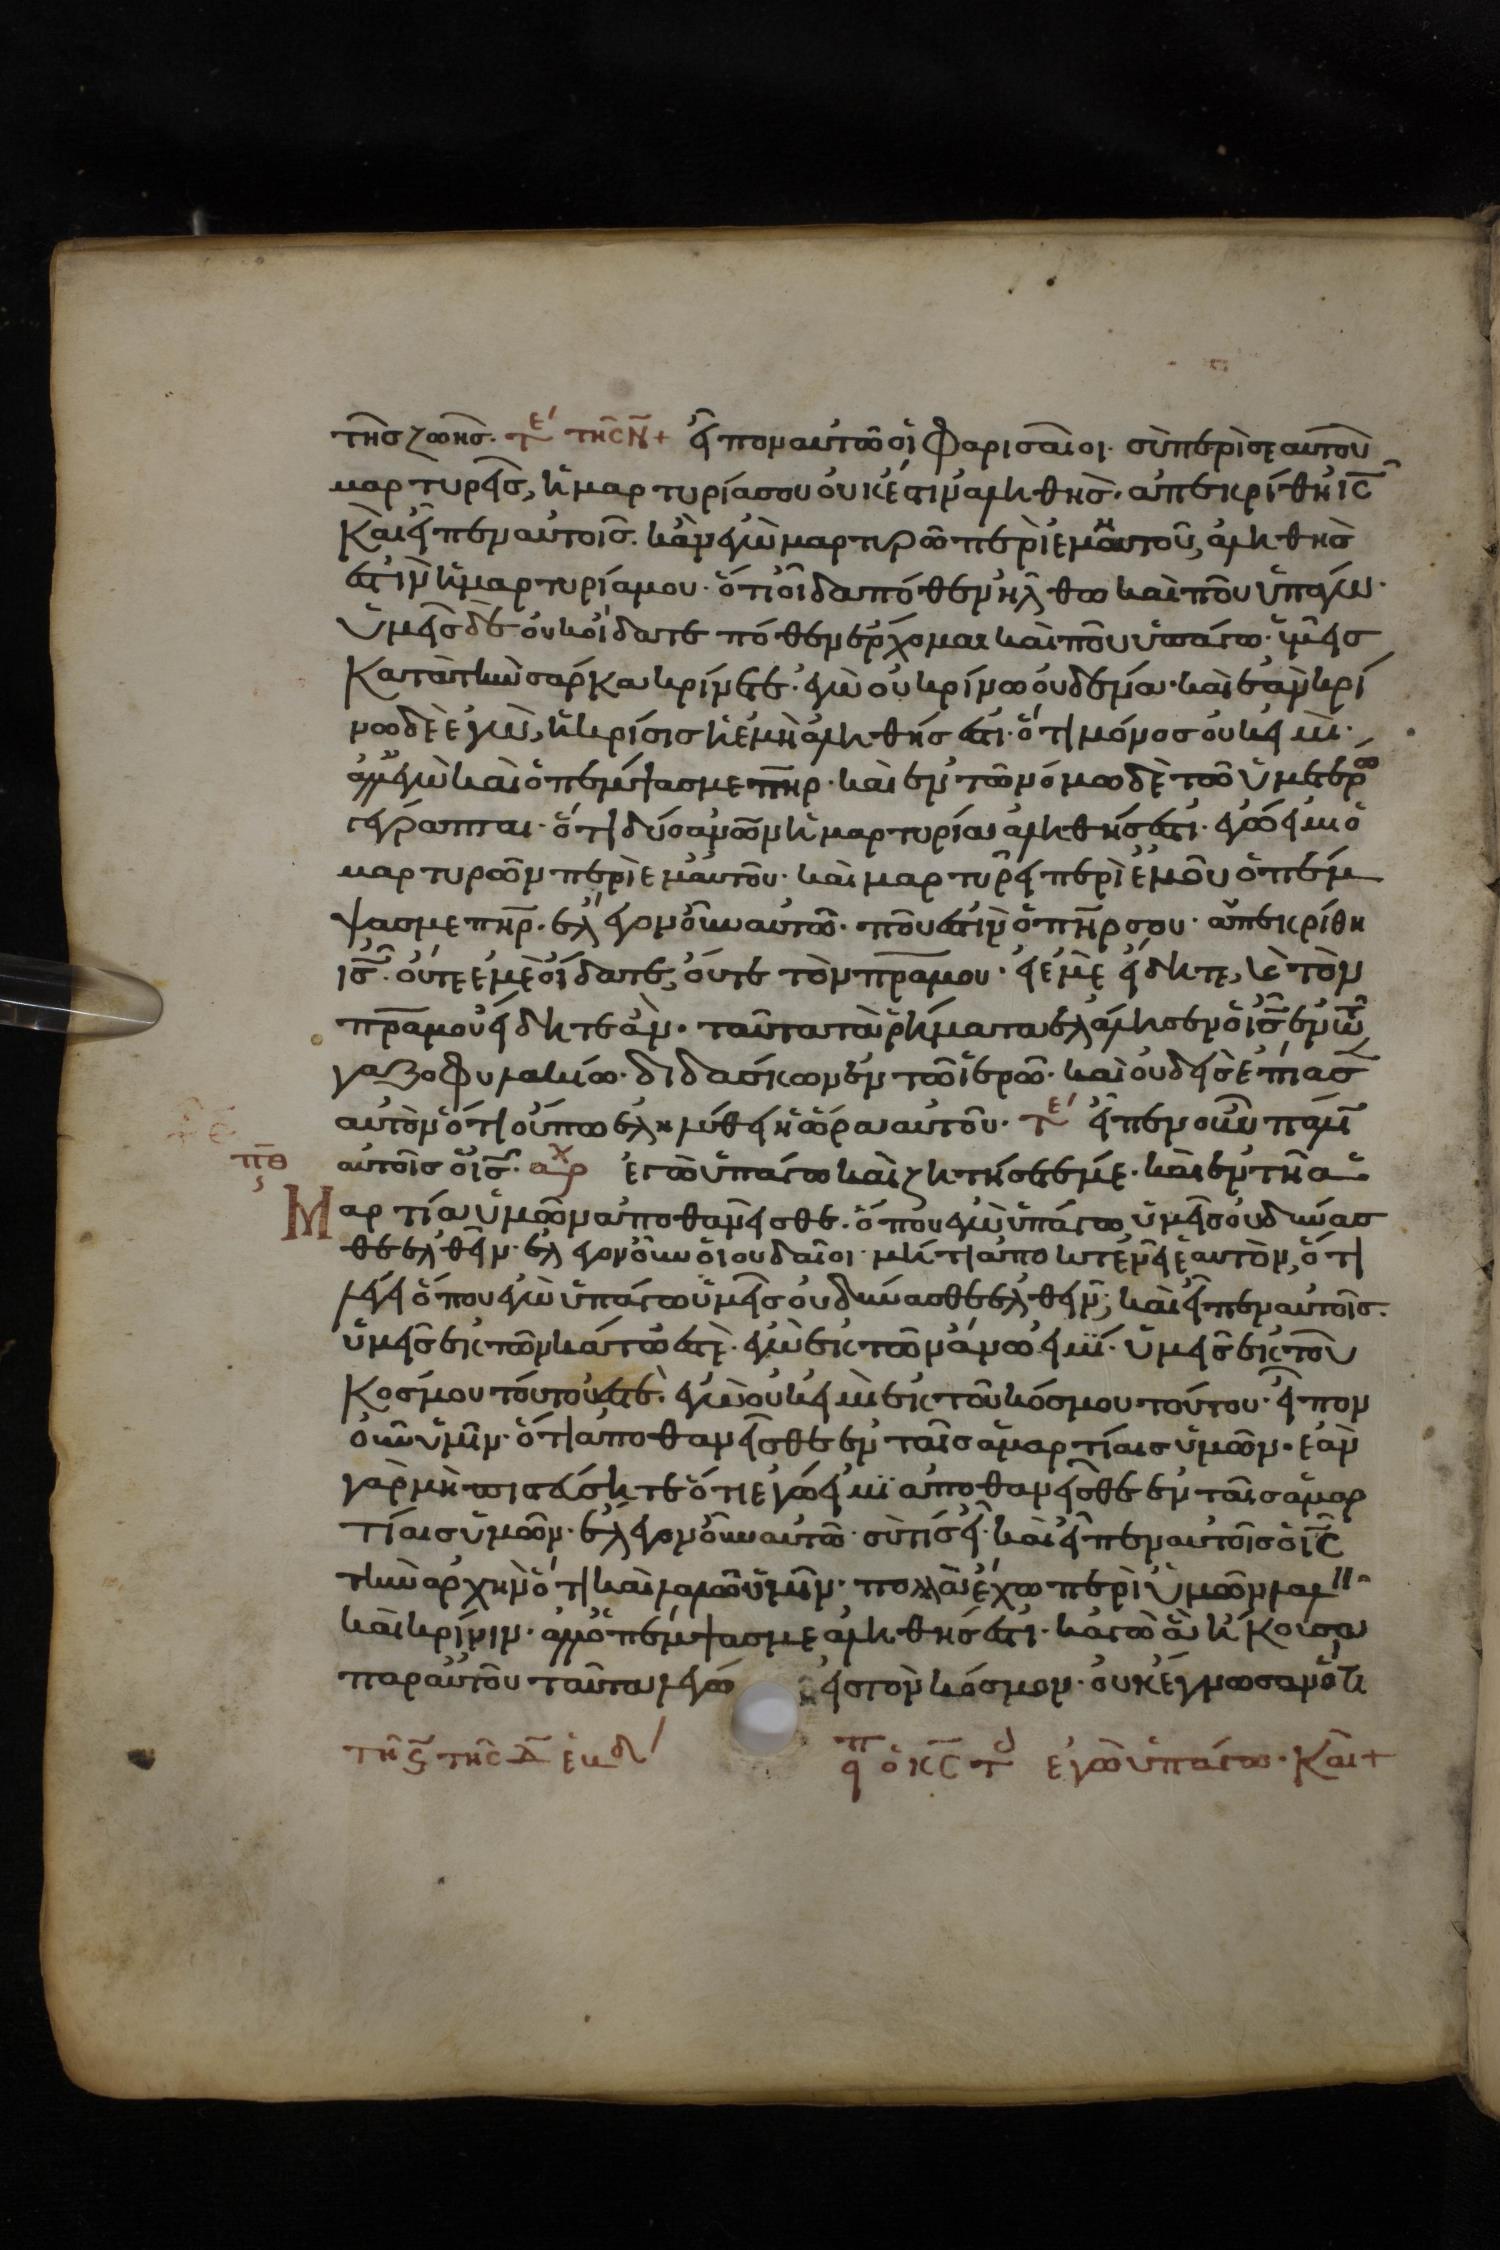 τῆς ζωῆς. τε´ τῆς Ν̅ + εἶπον αὐτῶ οἱ Φαρισαῖοι· σὺ περὶ σεαυτοῦ
μαρτυρεῖς, ἡ μαρτυρία σου οὐκ έστιν ἀληθής· ἀπεκρίθη ις̅
Καὶ εἶπεν αὐτοῖς. κὰν ἐγὼ μαρτυρῶ περὶ ἐμαυτοῦ, ἀληθής
ἐστὶν ἡ μαρτυρία μου· ὅτι οἶδα πόθεν ἦλθω καὶ ποῦ ὑπάγω·
Ὑμεῖς δὲ οὐκ οίδατε πόθεν ἐρχομαι καὶ ποῦ ὑπάγω· ὑμεῖς
Κατὰ τὴν σαρκα κρίνετε· ἐγὼ οὐ κρίνω οὐδένα· καὶ ἐὰν κρί
νω δὲ ἐγὼ, ἡ κρίσις ἡ ἐμὴ ἀληθής ἐστι· ὅτι μόνος οὐκ εἰμὶ·
ἀλλ ἐγὼ καὶ ὁ πέμψας με πηρ̅· καὶ ἐν τῶ νόμω δὲ τῶ ὑμετέρω
γέγραπται· ὅτι δύο ανων̅ ἡ μαρτυρία ἀληθής ἐστι· ἐγώ εἰμι ὁ
μαρτυρῶν περὶ ἐμαυτοῦ· καὶ μαρτυρεῖ περὶ ἐμοῦ ὁ πέμ
ψας με πηρ̅· ἐλεγον οὖν αὐτῶ· ποῦ ἐστὶν ὁ πηρ̅ σου· ἀπεκρίθη
ις̅· οὔτε ἐμὲ οἴδατε, οὔτε τὸν πρ̅α μου· εἰ ἐμὲ εἴδητε, καὶ τὸν
πρ̅α μου εἴδητε ἀν· ταῦτα τὰ ῥήματα ἐλάλησεν ὁ ις̅ ἐν τῶ
γαζοΦυλακίω· διδάσκων ἐν τῶ ἱερῶ· καὶ οὐδεὶς ἐπίας
αὐτὸν ὅτι οὔπω ἐληλύθει ἡ ὥρα αὐτοῦ· τε´ εἶπεν οὖν πάλιν
πθ̅ αὐτοῖς ὁ ις̅· αρχ ἐγὼ ὑπάγω καὶ ζητήσετέ με· καὶ ἐν τῆ ἁ
Μαρτία ὑμῶν ἀποθανεῖσθε· ὅπου ἐγὼ ὑπάγω ὑμεῖς οὐ δύνασ
θε ἐλθεῖν· ἐλεγον οὖν οἱ ιουδαῖοι· μήτι ἀποκτενεῖ ἑαυτὸν, ὅτι
λέγει ὅπου ἐγὼ ὑπάγω ὑμεῖς οὐ δύνασθε ἐλθεῖν; καὶ εἶπεν αὐτοῖς·
ὑμεῖς ἐκ τῶν κάτω ἐστὲ· ἐγὼ ἐκ τῶν ἄνω εἰμί· ὑμεῖς ἐκ τοῦ
Κοσμου τούτου ἐστὲ· ἐγὼ οὐκ εἰμὶ ἐκ τοῦ κόσμου τούτου· εἶπον
οὖν ὑμῖν· ὅτι ἀποθανεῖσθε ἐν ταῖς ἁμαρτίαις ὑμῶν· ἐὰν
γὰρ μὴ πιστεύσητε ὅτι ἐγώ εἰμι ἀποθανεῖσθε ἐν ταῖς ἁμαρ
τίαις ὑμῶν· ἐλεγον οὖν αὐτῶ· σὺ τίς εἶ· καὶ εἶπεν αὐτοῖς ὁ ις̅
τὴν ἀρχὴν ὅτι καὶ λαλῶ ὑμῖν· πολλὰ έχω περὶ ὑμῶν λαλ
καὶ κρίνιν· ἀλλ ὁ πέμψας με ἀληθής ἐστι· κἀγὼ ἃ ἤκουσα
παρ αὐτοῦ ταῦτα λέγω εἰς τὸν κόσμον· οὐκ έγνωσαν ὅτι
τῆ ς̅ τῆς Δ̅ ἑβδ εἶπ ὁ κς̅ τ ἐγὼ ὑπάγω· Καὶ +